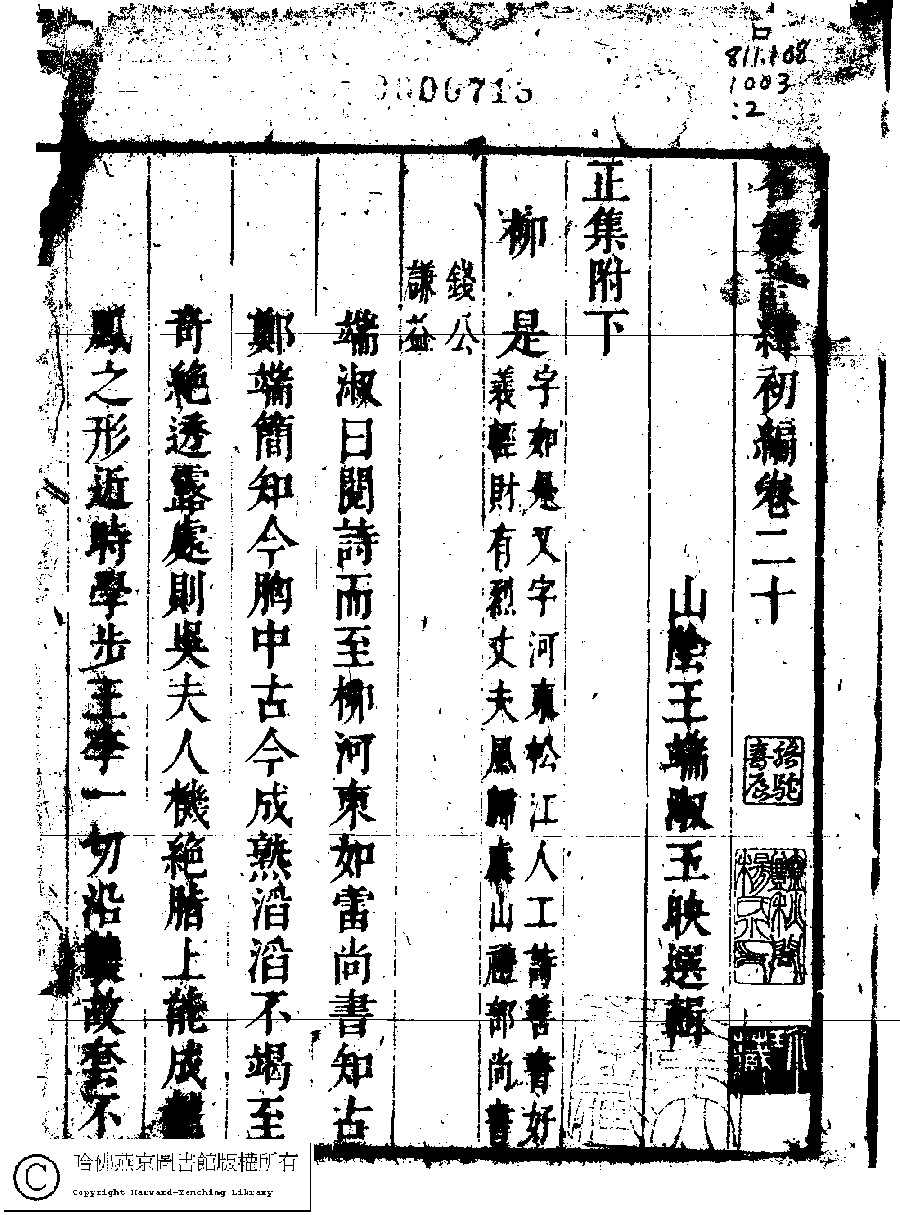 811.108
1003
:2
0006715
名媛詩緯初編卷二十
山陰王端淑玉映選輯
正集附下
柳是
字如是又字河東松江人工詩善書好
義輕財有烈丈夫風歸虞山禮部尚書
錢公
謙益
端淑曰閱詩而至柳河東如雷尚書知古
鄭端簡知今胸中古今成熟滔滔不竭至
奇絕透露處則吳夫人機絕膳上能成龍
鳳之形近時學步王李一切沿襲故套不
哈佛燕京圖書館版權所有
Copyright Harvard-Yenching Library